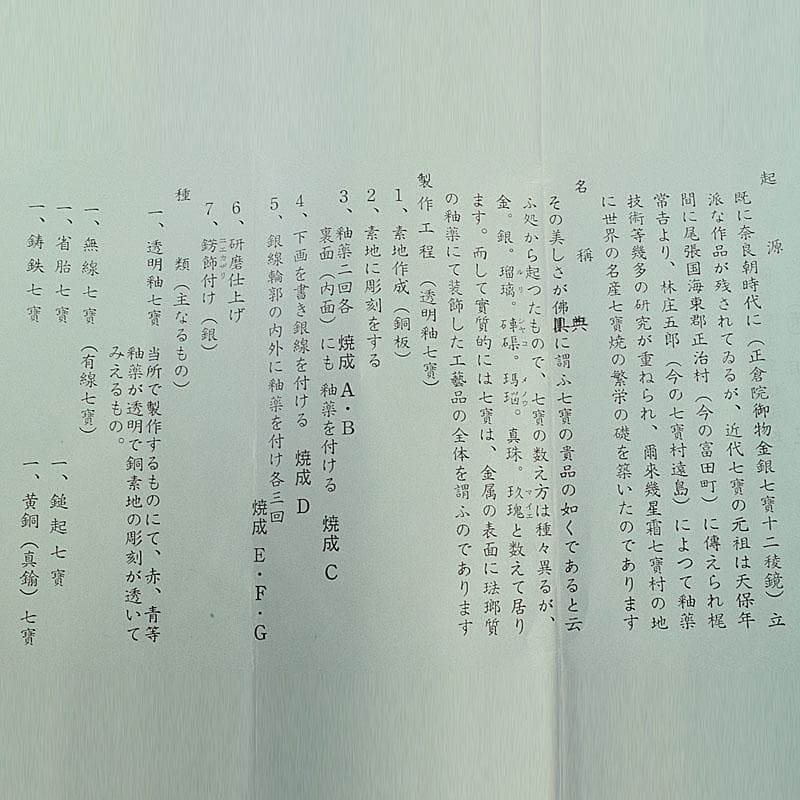 起源
既に奈良朝時代に（正倉院御物金銀七寶十二稜鏡）立
派な作品が残されてゐるが、近代七寶の元祖は天保年
間に尾張国海東郡正治村（今の富田町）に傳えられ梶
常吉より、林庄五郎（今の七寶村遠島）によつて釉薬
技術等幾多の研究が重ねられ、爾來幾星霜七寶村の地
に世界の名産七寶焼の繁栄の礎を築いたのであります
名稱
その美しさが佛典に謂ふ七寶の貴品の如くであると云
ふ処から起つたもので、七寶の数え方は種々異るが、
金。銀。瑠璃。硨磲。瑪瑙。真珠。玫瑰と数えて居り
ます。而して實質的には七寶は、金属の表面に琺瑯質
の釉薬にて装飾した工藝品の全体を謂ふのであります
製作工程（透明釉七寶）
1、素地作成（銅板）
2、素地に彫刻をする
3、釉薬二回各 焼成 A・B
裏面（内面）にも 釉薬を付ける 焼成 C
4、下画を書き銀線を付ける 焼成 D
5、銀線輪郭の内外に釉薬を付け各三回
焼成 E・F・G
6、研磨仕上げ
7、鎊飾付け（銀）
種類（主なるもの）
一、透明釉七寶 当所で製作するものにて、赤、青等
釉薬が透明で銅素地の彫刻が透いて
みえるもの。
一、無線七寶（有線七寶）
一、省胎七寶 一、鎚起七寶
一、鋳鉄七寶 一、黄銅（真鍮）七寶